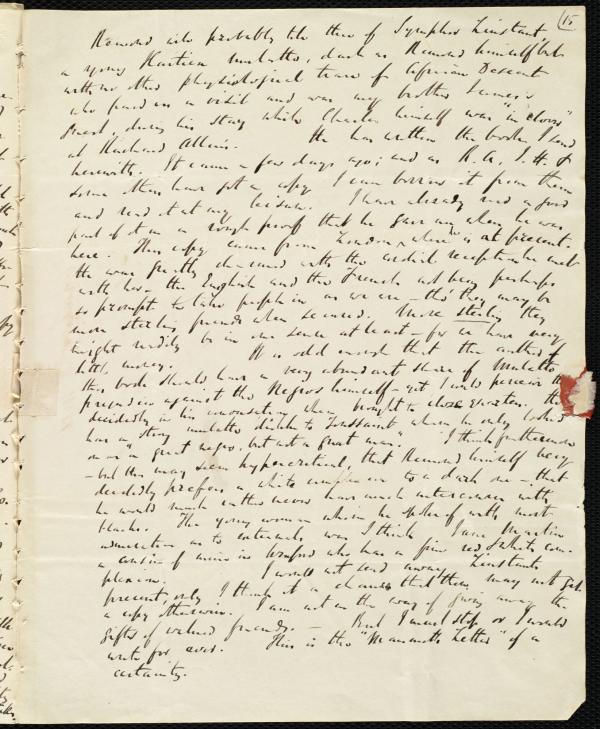 15
Remond is probably the tone of Symphor Linstant
a young Haitien mulatto, dark as Remond himself but
with no other physiological trace of African Descent
who paid us a visit and was my brother James's
Guest, during his stay while Charles himself was "in clover"
at Richard Allen's. He has written the book I send
herewith. It came a few days ago; and as R. A., J. H. &
some others have got a copy I can borrow it from them
and read it at my leisure. I have already read a good
part of it in a rough proof that he gave me when he was
here. This copy came from London, where he is at present.
He was greatly charmed with the cordial reception he met
with here – the English and the French not being perhaps
so prompt to take people in as we are – tho' they may be
more sterling friends when secured. More sterling they
might readily be in one sense at least – for we have very
little money. It is odd enough that the author of
this book should have a very abundant share of Mulatto
prejudice against the Negros himself – yet I could perceive
decidedly in his conversation when brought to close quarters. He
has a strong mulatto dislike to Toussaint whom he only looked
on as "a great negro, but not a great man". I think furthermore
– but this may seem hypercritical, that Remond himself very
decidedly prefers a white to a dark one – that
he would much rather never have much intercourse with
blacks. The young woman whom he spoke of with most
admiration as to externals was I think Jane Martin
a cousin of mine in Wexford who has a fine red & white com-
plexion. I would not send away Linstant's
present, only I think it a chance that they may not get
a copy otherwise. I am not in the way of giving away the
gifts of valued friends. – But I must stop or I would
write for ever. This is the "Mammoth Letter" of a
certainty.